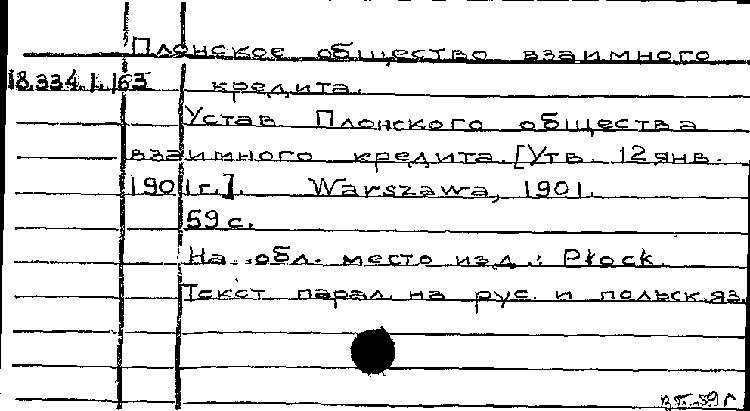 Плонское общество взаимного
18.334.1.163 кредита.
Устав Плонского общества
взаимного кредита. [Утв. 12 янв.
1901 г.]. Warszawa, 1901.
59 с.
На обл. место изд.: Płock.
Текст парал. на рус. и польск. яз.